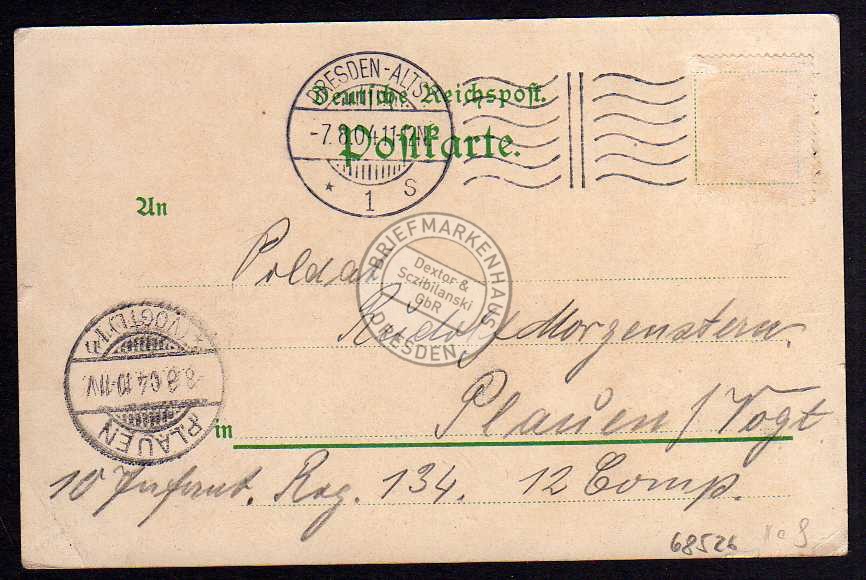 DRESDEN-ALTST.
-7.8.04.11-12N.
* 1 S
Deutsche Reichspost.
Postkarte.
An
Soldat
Morgenstern.
Plauen / Vogt.
in
10 Infant. Reg. 134. 12 Comp.
PLAUEN
8.8.04.10-11V.
(VOGTL.)
BRIEFMARKENHAUS
Dextor &
Sczibilanski
GbR
DRESDEN
68526